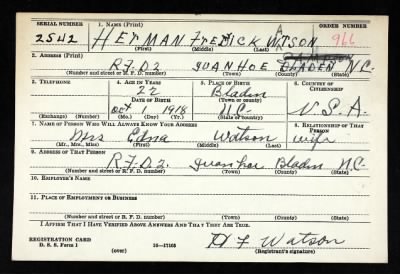 SERIAL NUMBER 1. NAME (Print) ORDER NUMBER
2542 HERMAN FREDRICK WATSON 966
(First) (Middle) (Last)
2. ADDRESS (Print)
R.F.D 2 IVANHOE BLADEN N.C.
(Number and street or R. F. D. number) (Town) (County) (State)
3. TELEPHONE 4. AGE IN YEARS 5. PLACE OF BIRTH 6. COUNTRY OF CITIZENSHIP
22 Bladen
DATE OF BIRTH (Town or county)
Oct 1918 N.C. U.S.A.
(Exchange) (Number) (Mo.) (Day) (Yr.) (State or country)
7. NAME OF PERSON WHO WILL ALWAYS KNOW YOUR ADDRESS 8. RELATIONSHIP OF THAT PERSON
Mrs Edna Watson wife
(Mr., Mrs., Miss) (First) (Middle) (Last)
9. ADDRESS OF THAT PERSON
R.F.D 2. Ivanhoe Bladen N.C.
(Number and street or R. F. D. number) (Town) (County) (State)
10. EMPLOYER'S NAME
11. PLACE OF EMPLOYMENT OR BUSINESS
(Number and street or R. F. D. number) (Town) (County) (State)
I AFFIRM THAT I HAVE VERIFIED ABOVE ANSWERS AND THAT THEY ARE TRUE.
REGISTRATION CARD
D. S. S. Form 1 (over) 16—17105 H F Watson
(Registrant's signature)